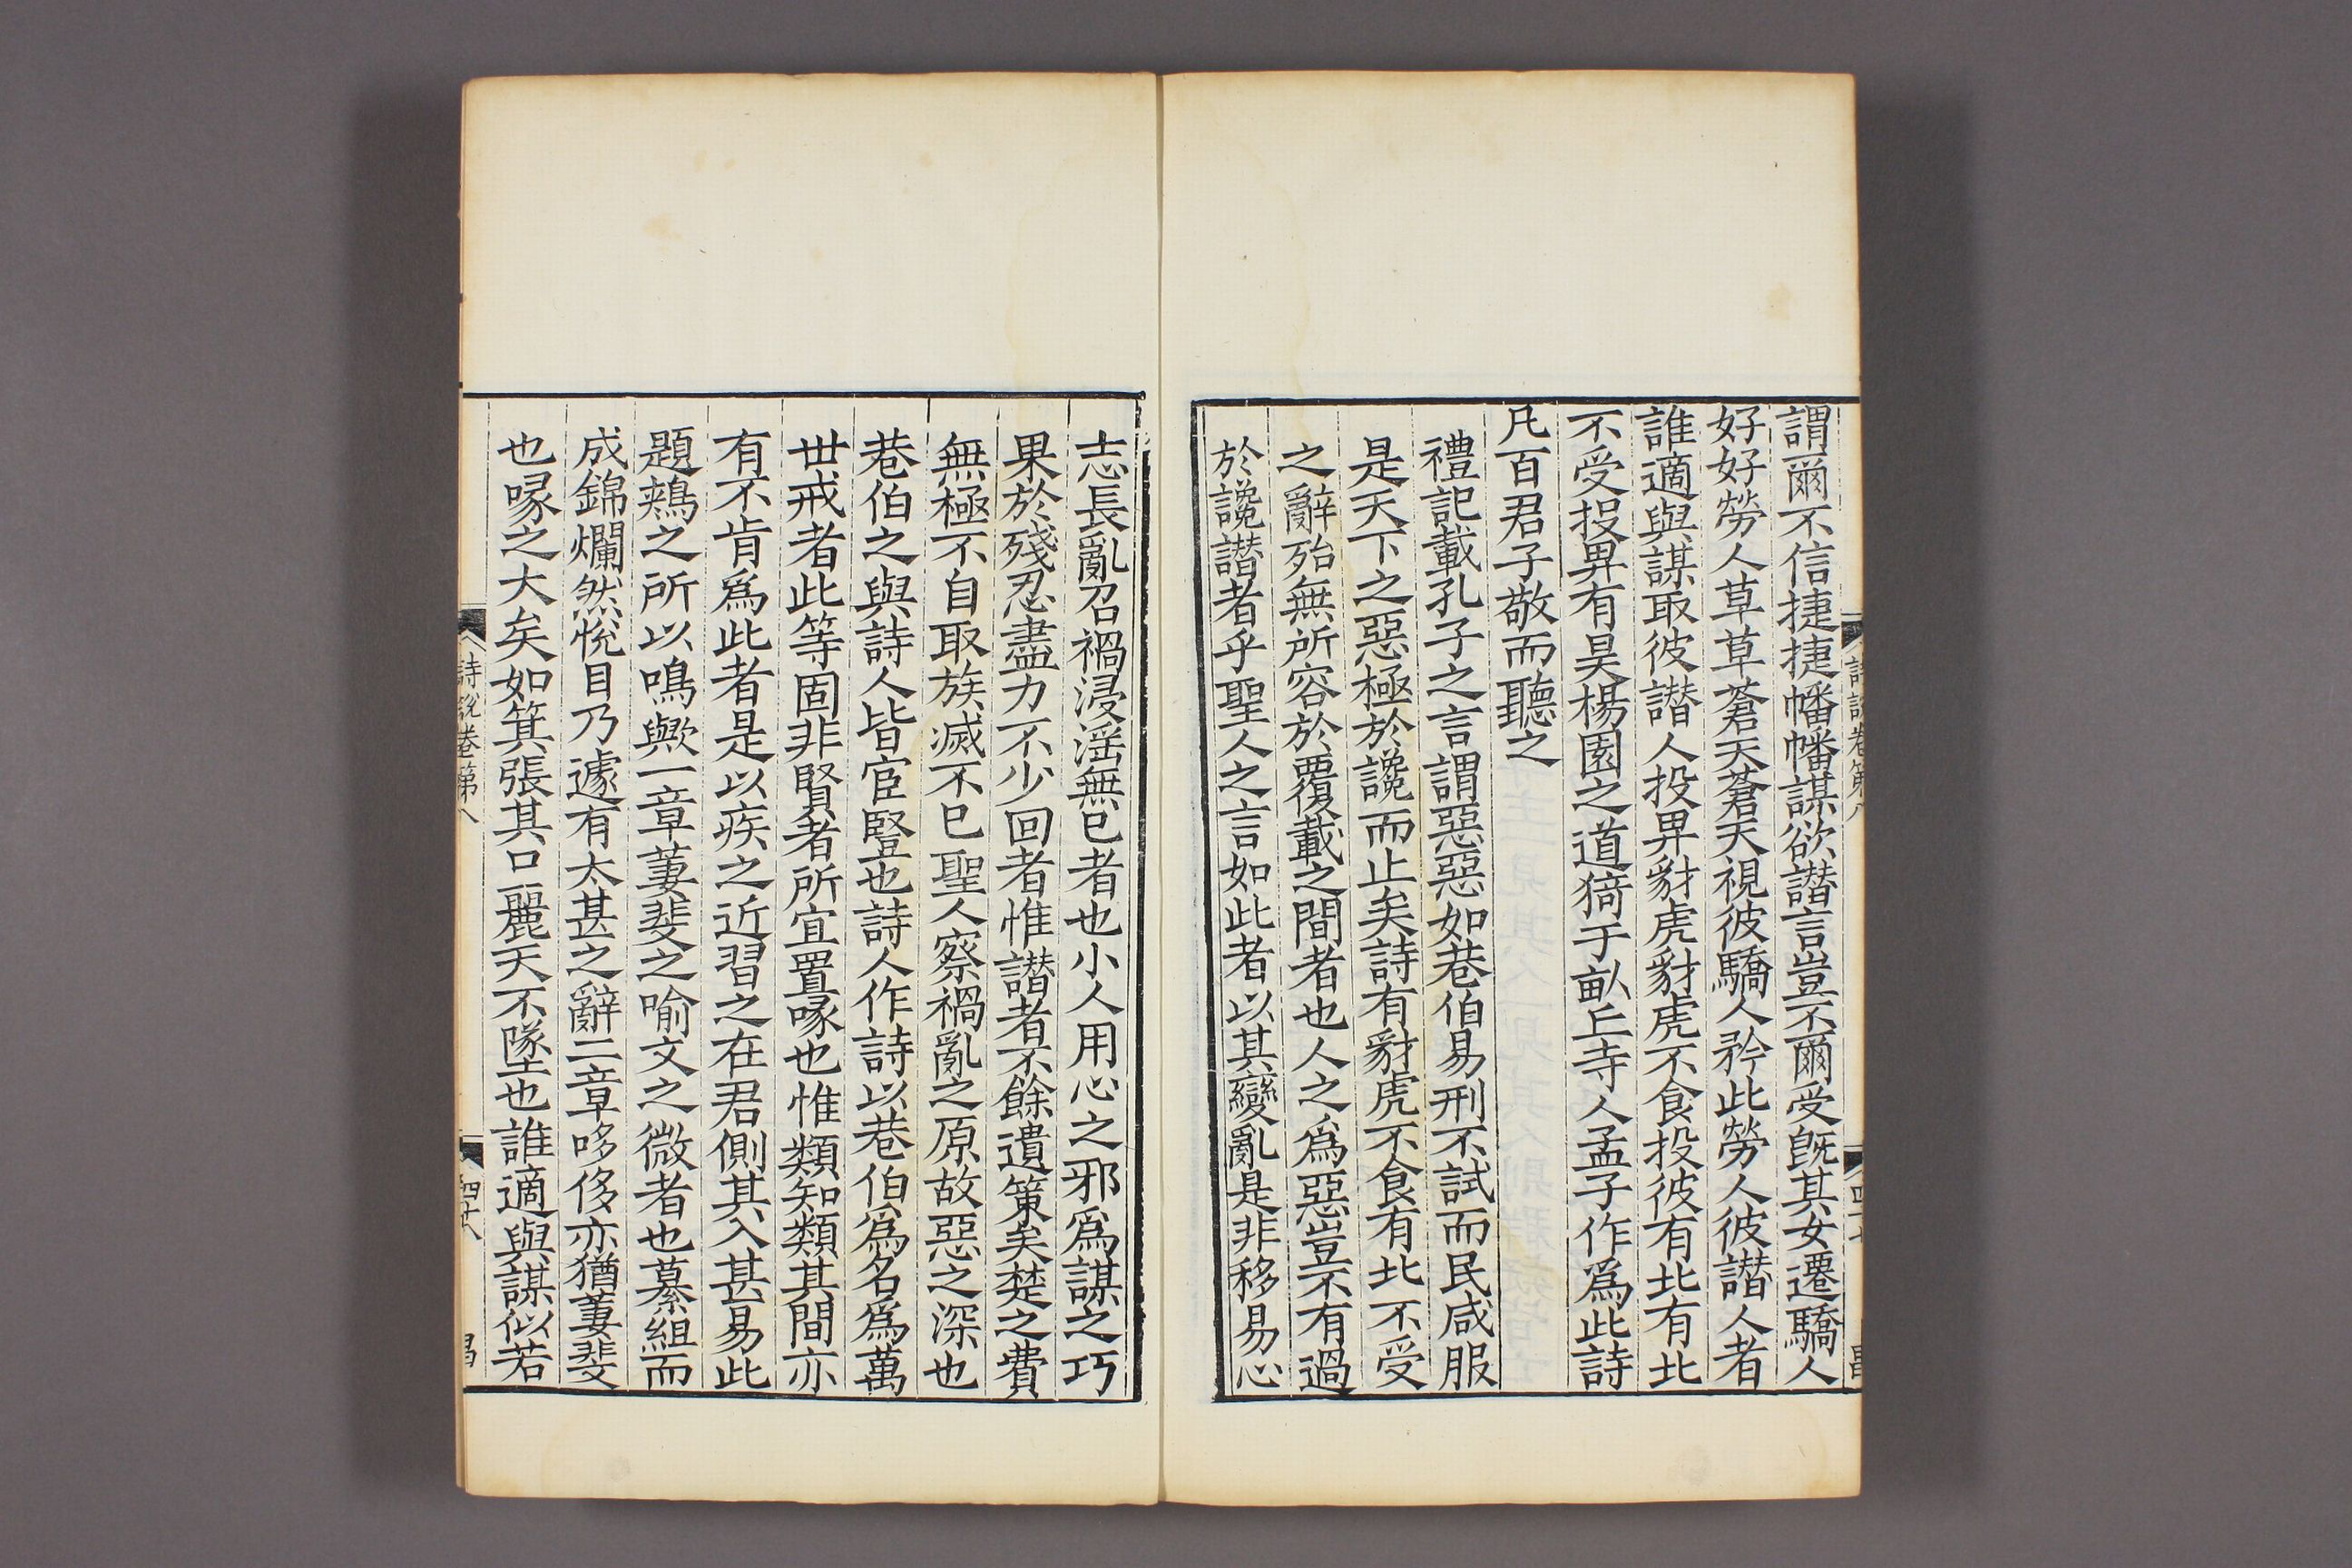 謂爾不信捷捷幡幡謀欲譖言豈不爾受旣其女遷驕人
好好勞人草草蒼天蒼天視彼驕人矜此勞人彼譖人者
誰適與謀取彼譖人投畀豺虎豺虎不食投彼有北有北
不受投畀有昊楊園之道猗于畝丘寺人孟子作爲此詩
凡百君子敬而聽之
禮記載孔子之言謂惡惡如巷伯易刑不試而民咸服
是天下之惡極於讒而止矣詩有豺虎不食有北不受
之辭殆無所容於覆載之間者也人之爲惡豈不有過
於讒譖者乎聖人之言如此者以其變亂是非移易心
志長亂召禍浸淫無已者也小人用心之邪爲謀之巧
果於殘忍盡力不少回者惟譖者不餘遺策矣楚之費
無極不自取族滅不已聖人察禍亂之原故惡之深也
巷伯之與詩人皆宦豎也詩人作詩以巷伯爲名爲萬
世戒者此等固非賢者所宜置喙也惟類知類其間亦
有不肯爲此者是以疾之近習之在君側其入甚易此
題鴂之所以鳴歟一章萋斐之喻文之微者也纂組而
成錦爛然悅目乃遽有太甚之辭二章哆侈亦猶萋斐
也喙之大矣如箕張其口麗天不墜也誰適與謀似若
詩說卷第八
四十八
昌